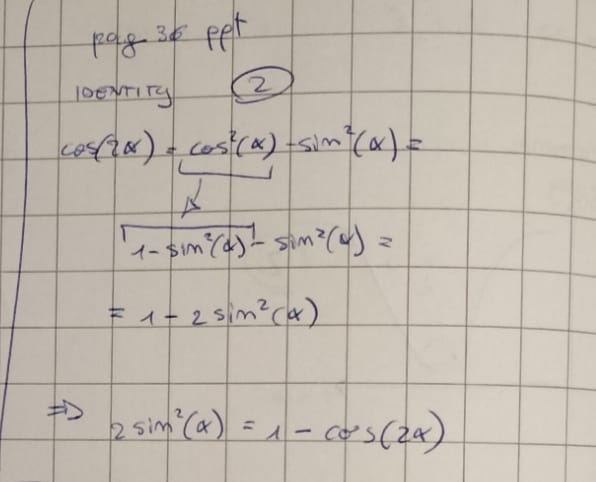 pag 36 ppt
IDENTITY 2
cos(2α) = cos²(α) - sin²(α) =
1 - sin²(α) - sin²(α) =
= 1 - 2 sin²(α)
⇒ 2 sin²(α) = 1 - cos(2α)